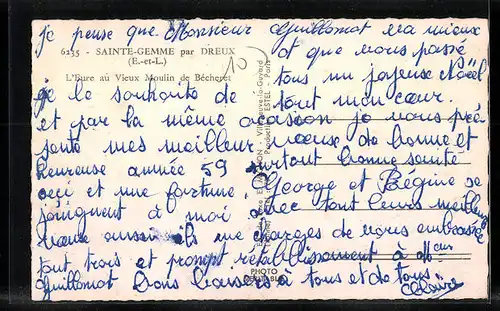 je pense que Monsieur Guillomot va mieux
6235 - SAINTE-GEMME par DREUX
(E.-et-L.)
L'Eure au Vieux Moulin de Bécheret
10
et que vous passé
tous un joyeuse Noël
je le souhaite de tout mon cœur.
et par la même occasion je vous pré
sente mes meilleur vœuse de bonne et
heureuse année 59 surtout bonne santé
ceci et une fortune. George et Régine se
joingnent à moi avec tout leurs meilleurs
vœux aussi ils me charges de vous embrassé
tout trois et prompt rétablissement à Mr
Guillomot Bons baisers à tous et de tous
Claire
PHOTO
VÉRITABLE